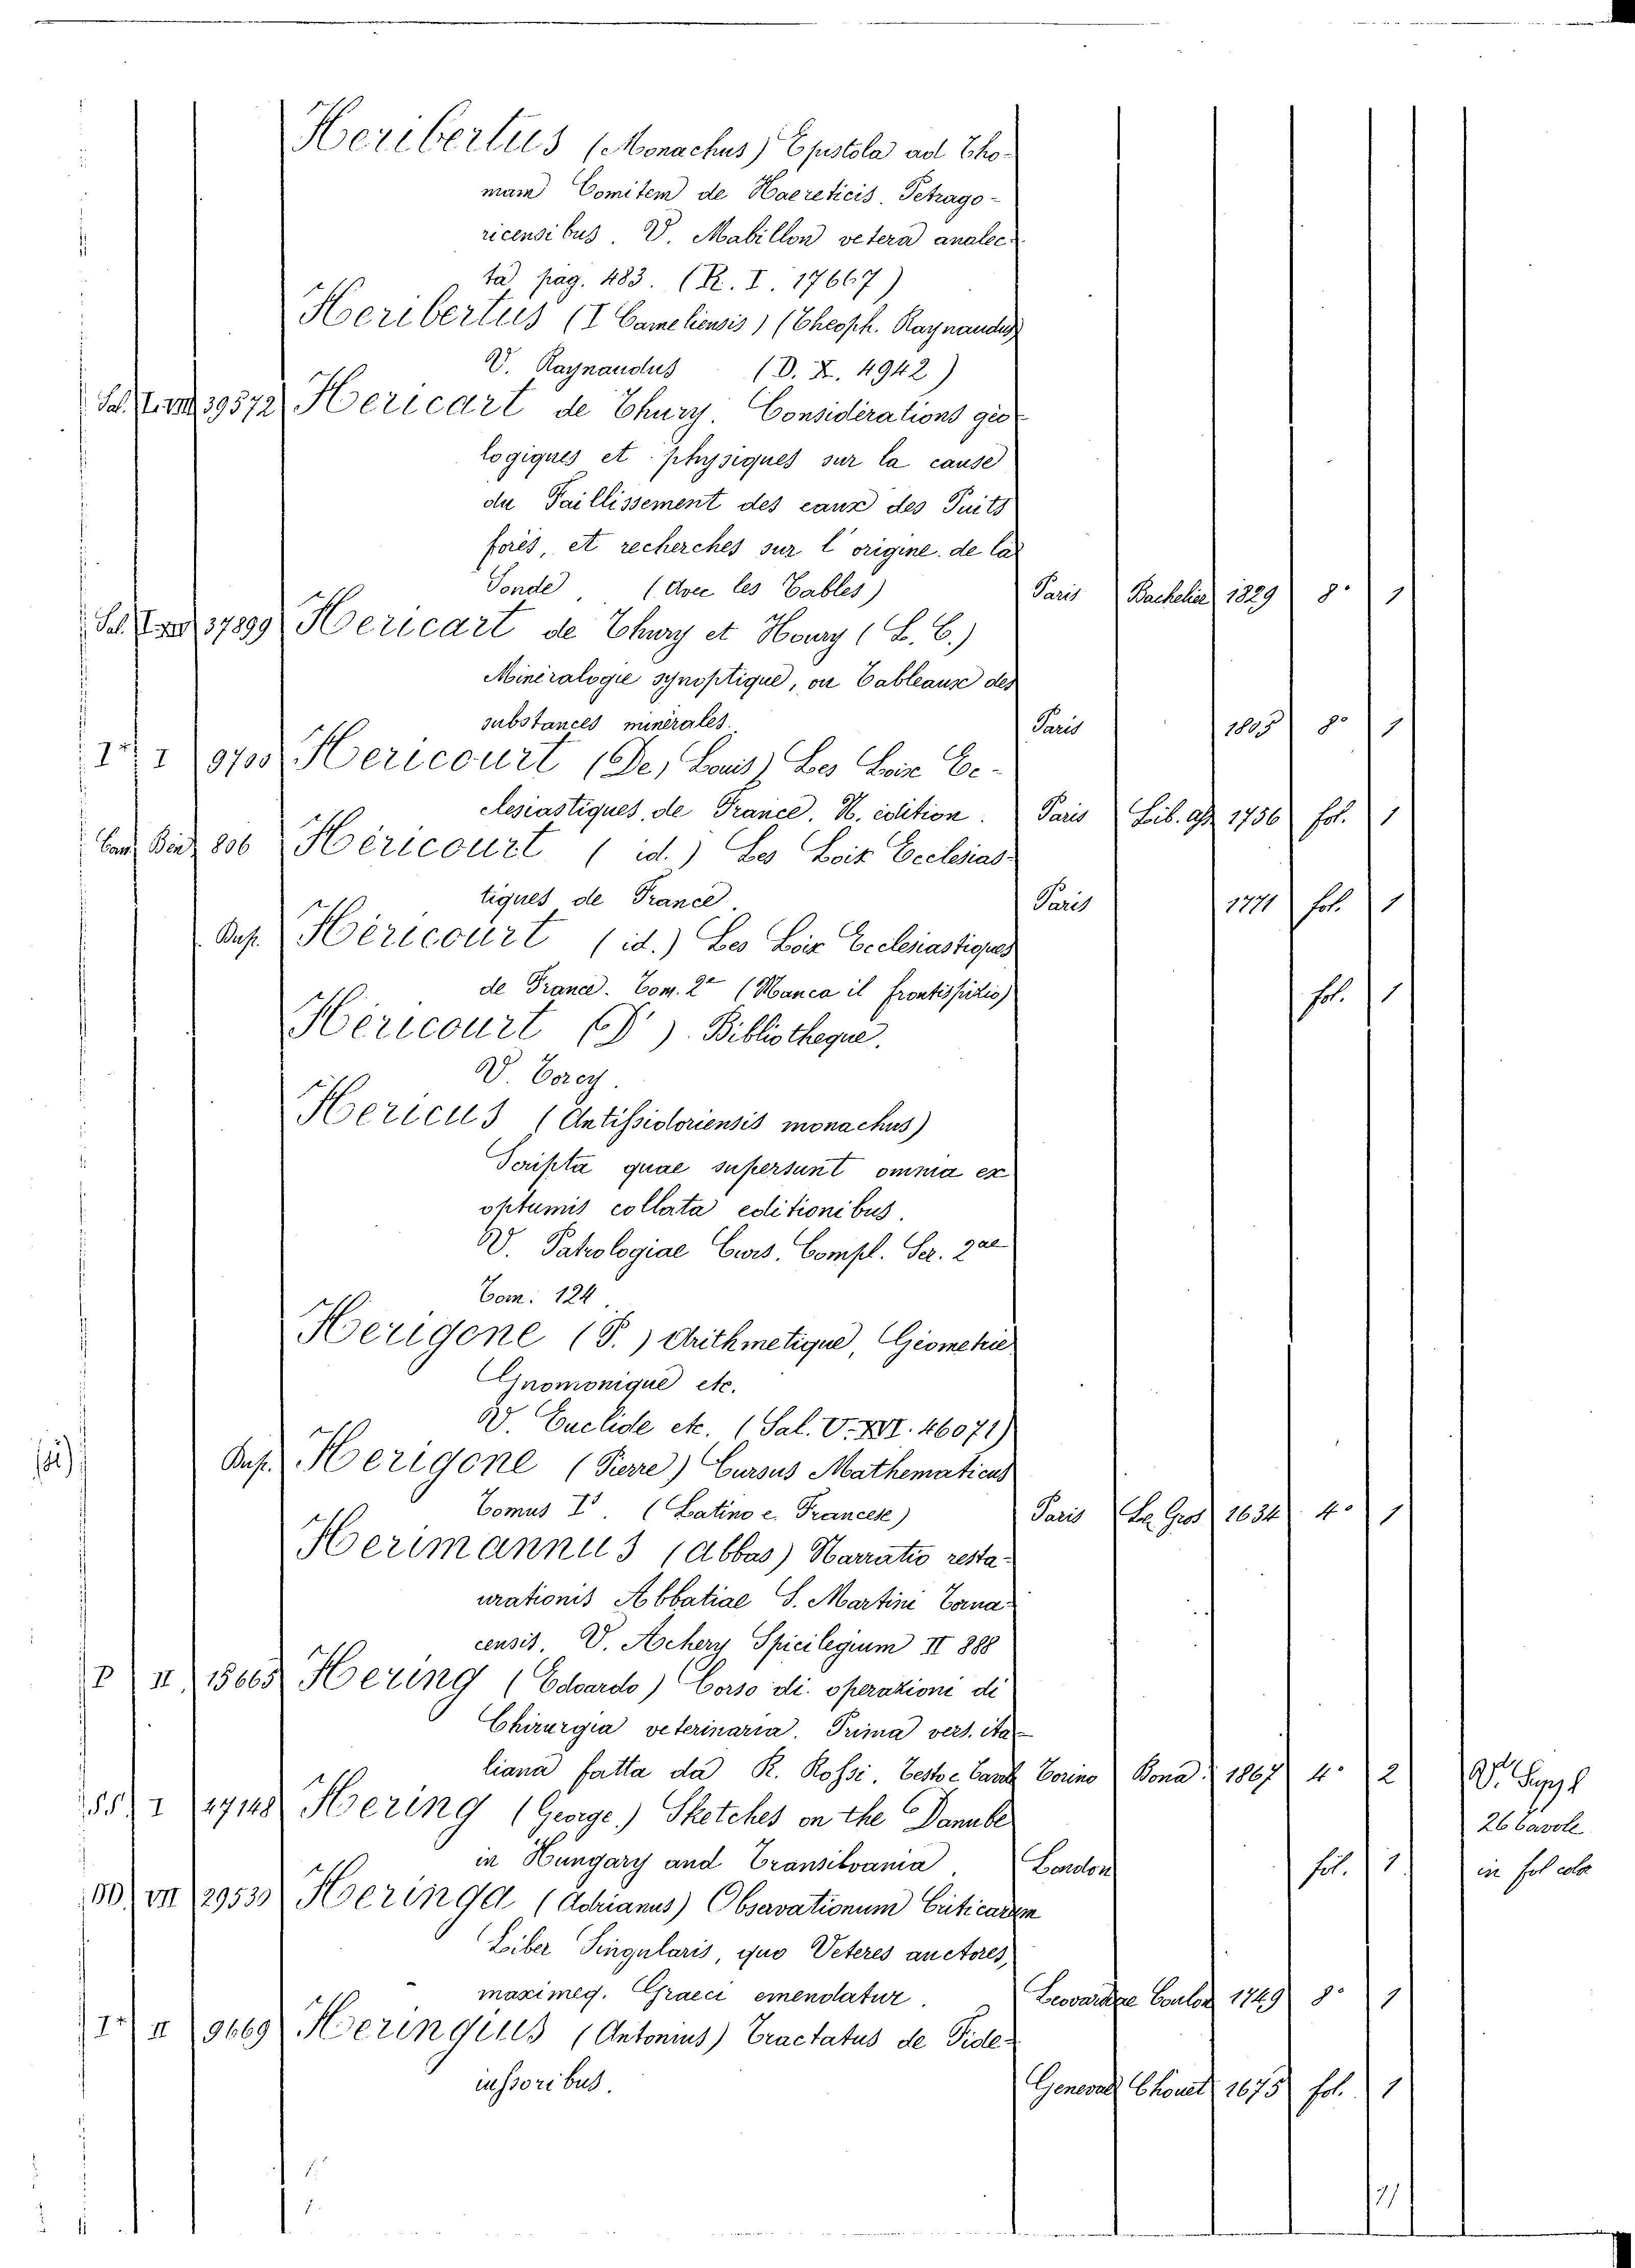 Heribertus (Monachus) Epistola ad Tho-
mam Comitem de Haereticis Petrago-
ricensibus. V. Mabillon vetera analec-
ta pag. 483. (R. I. 17667)
Heribertus (I Cameliensis) (Theoph. Raynandus)
V. Raynaudus (D. X. 4942)
Sal. V. VIII 39572 Hericart de Thury. Considérations géo-
logiques et physiques sur la cause
du Jaillissement des eaux des Puits
forés, et recherches sur l'origine de la
Sonde. (Avec les Tables) Paris Bachelier 1829 8° 1
Sal. 37899 Hericart de Thury et Houry (L. C.)
Minéralogie synoptique, ou Tableaux des
substances minérales. Paris 1805 8° 1
Iª I 9700 Hericourt (De, Louis) Les Loix Ec-
clesiastiques de France. N. édition. Paris Lib. as. 1756 fol. 1
Can. Ben. 806 Héricourt (id.) Les Loix Ecclésias-
tiques de France. Paris 1771 fol. 1
Dup. Héricourt (id.) Les Loix Ecclésiastiques
de France. Tom. 2º (Manca il frontispizio) fol. 1
Héricourt (D') Bibliotheque.
V. Torcy.
Hericus (Antissiodoriensis monachus)
Scripta quae supersunt omnia ex
optumis collata editionibus.
V. Patrologiae Curs. Compl. Ser. 2ae
Tom. 124
Herigone (P.) Arithmetique, Géometrie
Gnomonique etc.
V. Euclide etc. (Sal. V. XVI. 46071)
Dup. Herigone (Pierre) Cursus Mathematicus
Tomus Iº. (Latino e Francese) Paris Le Gros 1634 4° 1
Herimannus (Abbas) Narratio resta-
urationis Abbatiae S. Martini Torna-
censis. V. Achery Spicilegium II 888
P II 15665 Hering (Edoardo) Corso di operazioni di
Chirurgia veterinaria. Prima vers. ita-
liana fatta da R. Rossi. Testo e Tavole Torino Bona 1867 4° 2 V. Suppl
26 tavole
55 I 27148 Hering (George) Sketches on the Danube
in Hungary and Transilvania. London fol. 1 in fol
VII 29533 Heringa (Adrianus) Observationum Criticarum
Liber Singularis, quo Veteres auctores,
maximeq. Graeci emendatur. Leovardiae Coulon 1749 8° 1
Iª II 9669 Heringius (Antonius) Tractatus de Fide-
iussoribus. Genevae Chouet 1675 fol. 1